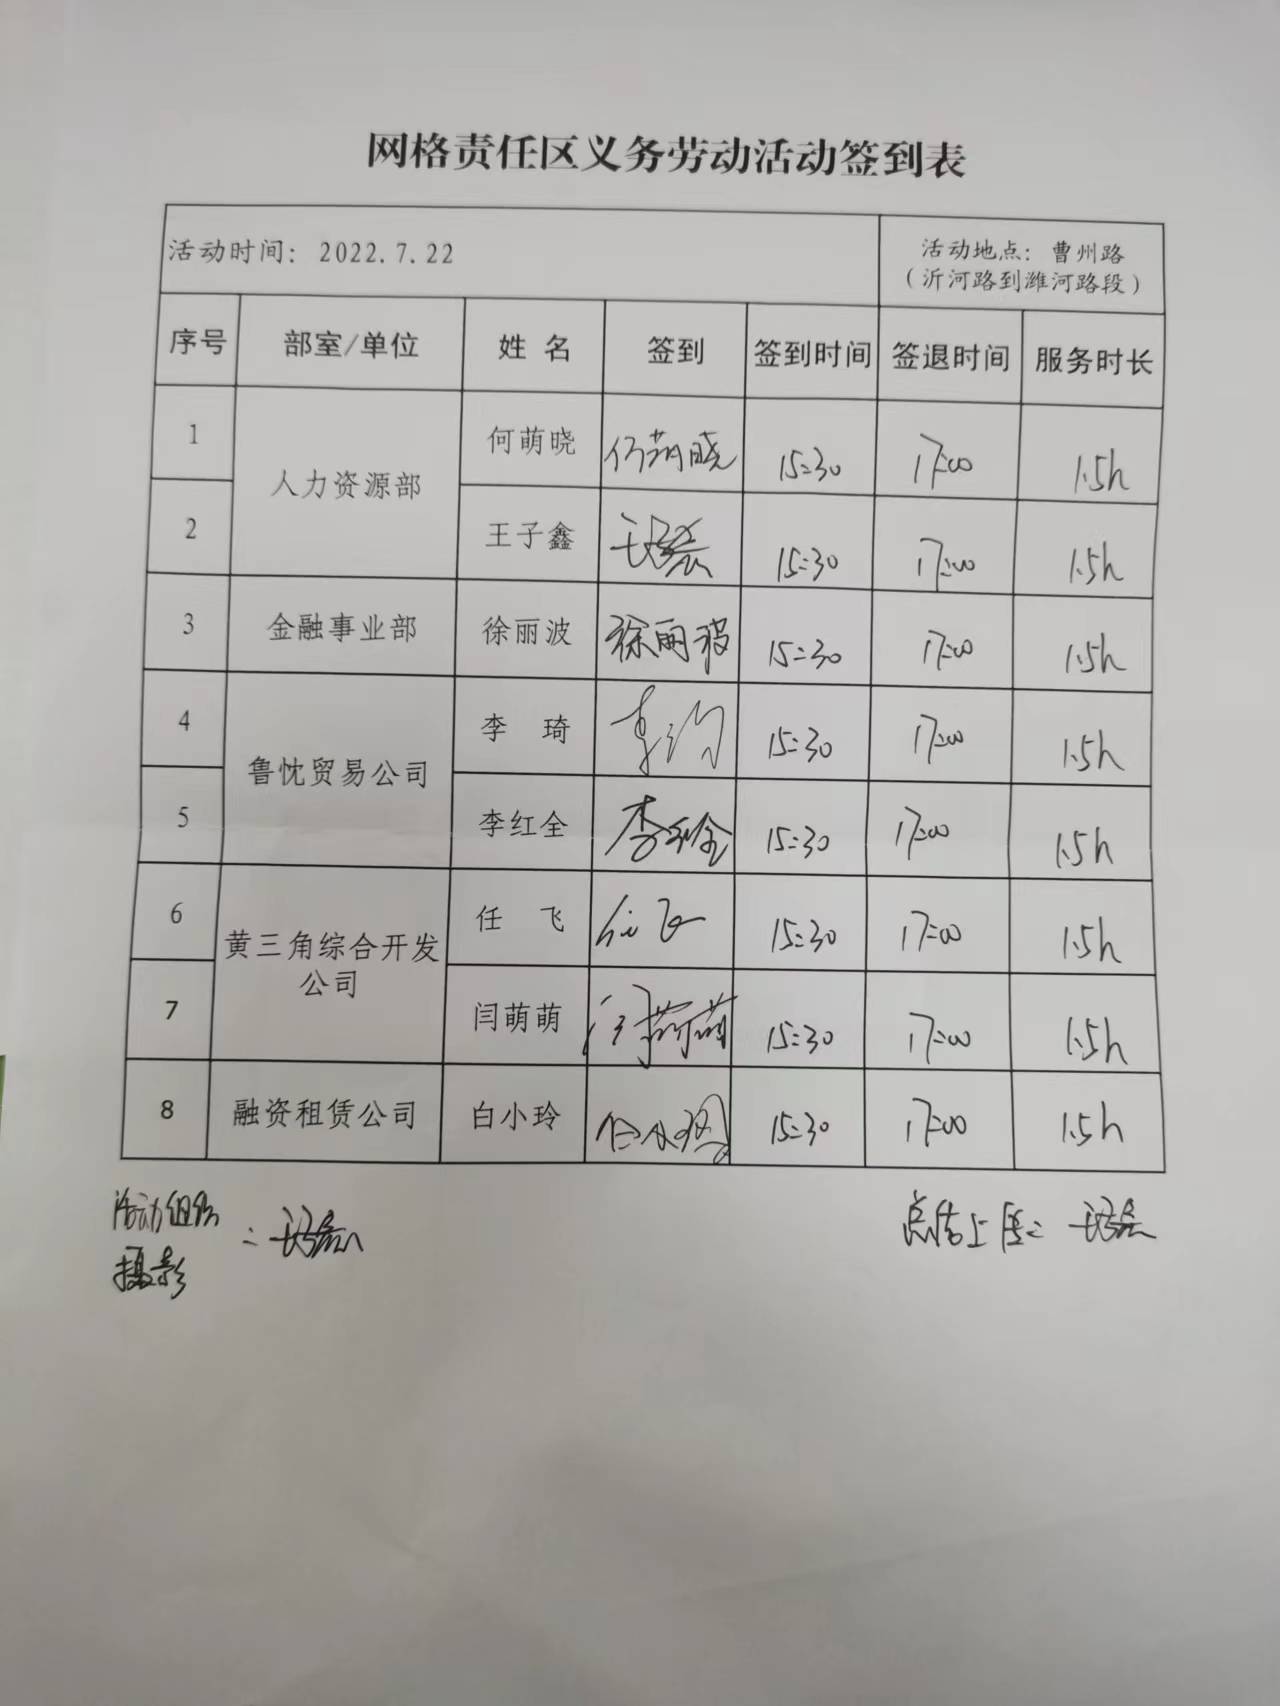 网格责任区义务劳动活动签到表
活动时间：2022.7.22 活动地点：曹州路
（沂河路到潍河路段）
序号 部室/单位 姓 名 签到 签到时间 签退时间 服务时长
1 人力资源部 何萌晓 何萌晓 15:30 17:00 1.5h
2 王子鑫 王子鑫 15:30 17:00 1.5h
3 金融事业部 徐丽波 徐丽波 15:30 17:00 1.5h
4 鲁忱贸易公司 李 琦 李琦 15:30 17:00 1.5h
5 李红全 李红全 15:30 17:00 1.5h
6 黄三角综合开发
公司 任 飞 任飞 15:30 17:00 1.5h
7 闫萌萌 闫萌萌 15:30 17:00 1.5h
8 融资租赁公司 白小玲 白小玲 15:30 17:00 1.5h
活动组织 : 王子鑫
摄影
上传: 王子鑫